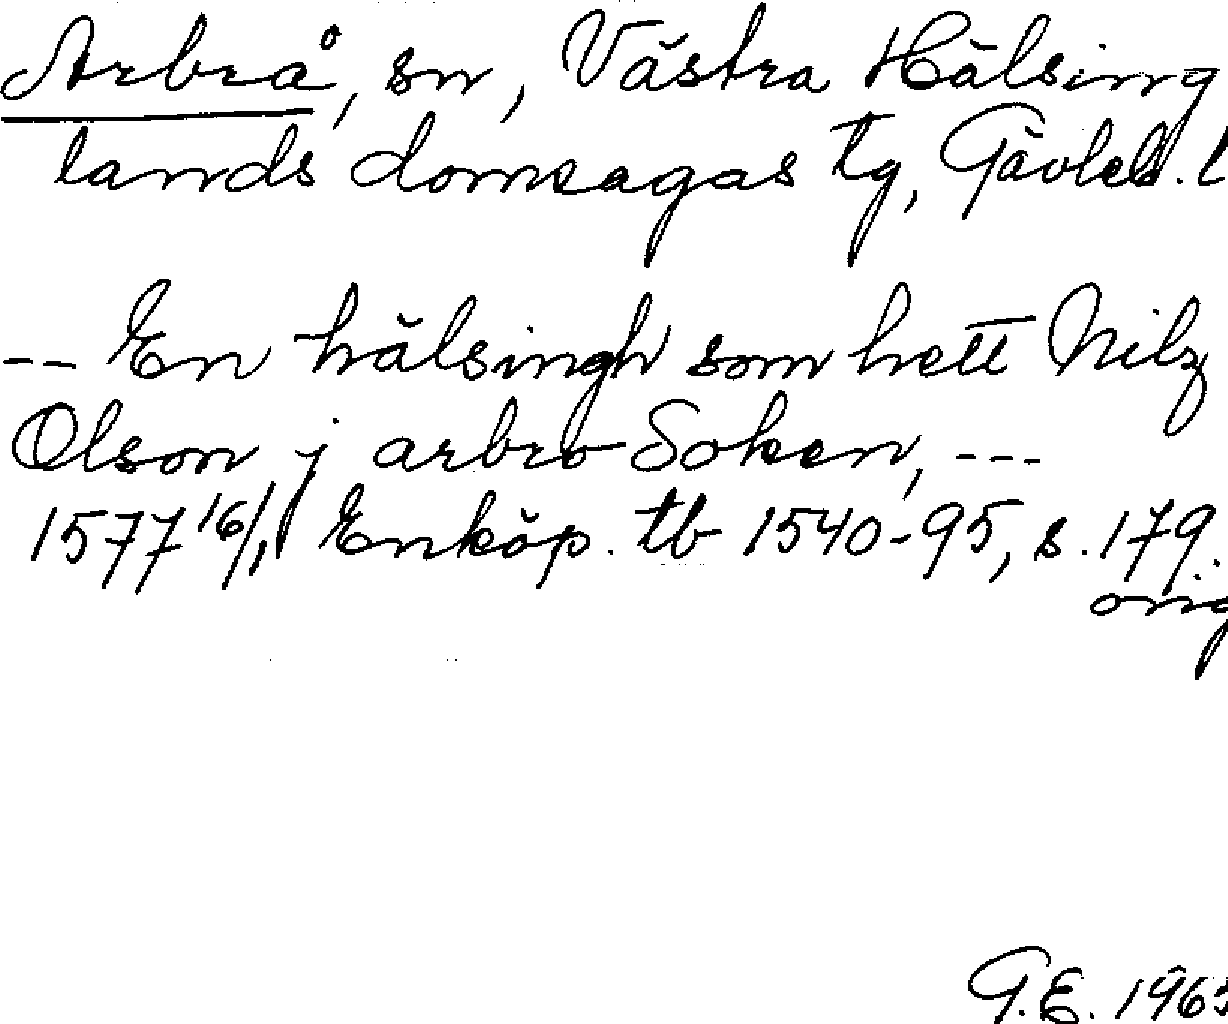 Arbrå, sn, Västra Hälsing
lands domsagas tg, Gävleb. l
-- En hälsingh som hett Nilz
Olson j arbro Soken, ---
1577 16/1 Enköp. tb 1540-95, s. 179.
orig
G.E. 1963